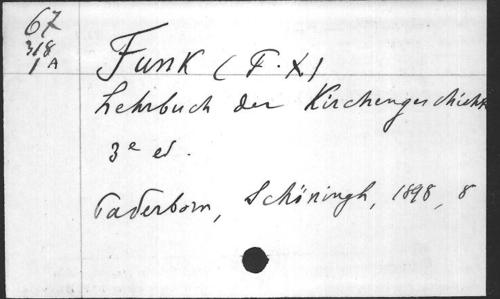 67
318
1 A
Funk (F. X)
Lehrbuch der Kirchengeschicht
3e ed.
Paderborn, Schöningh, 1898, 8